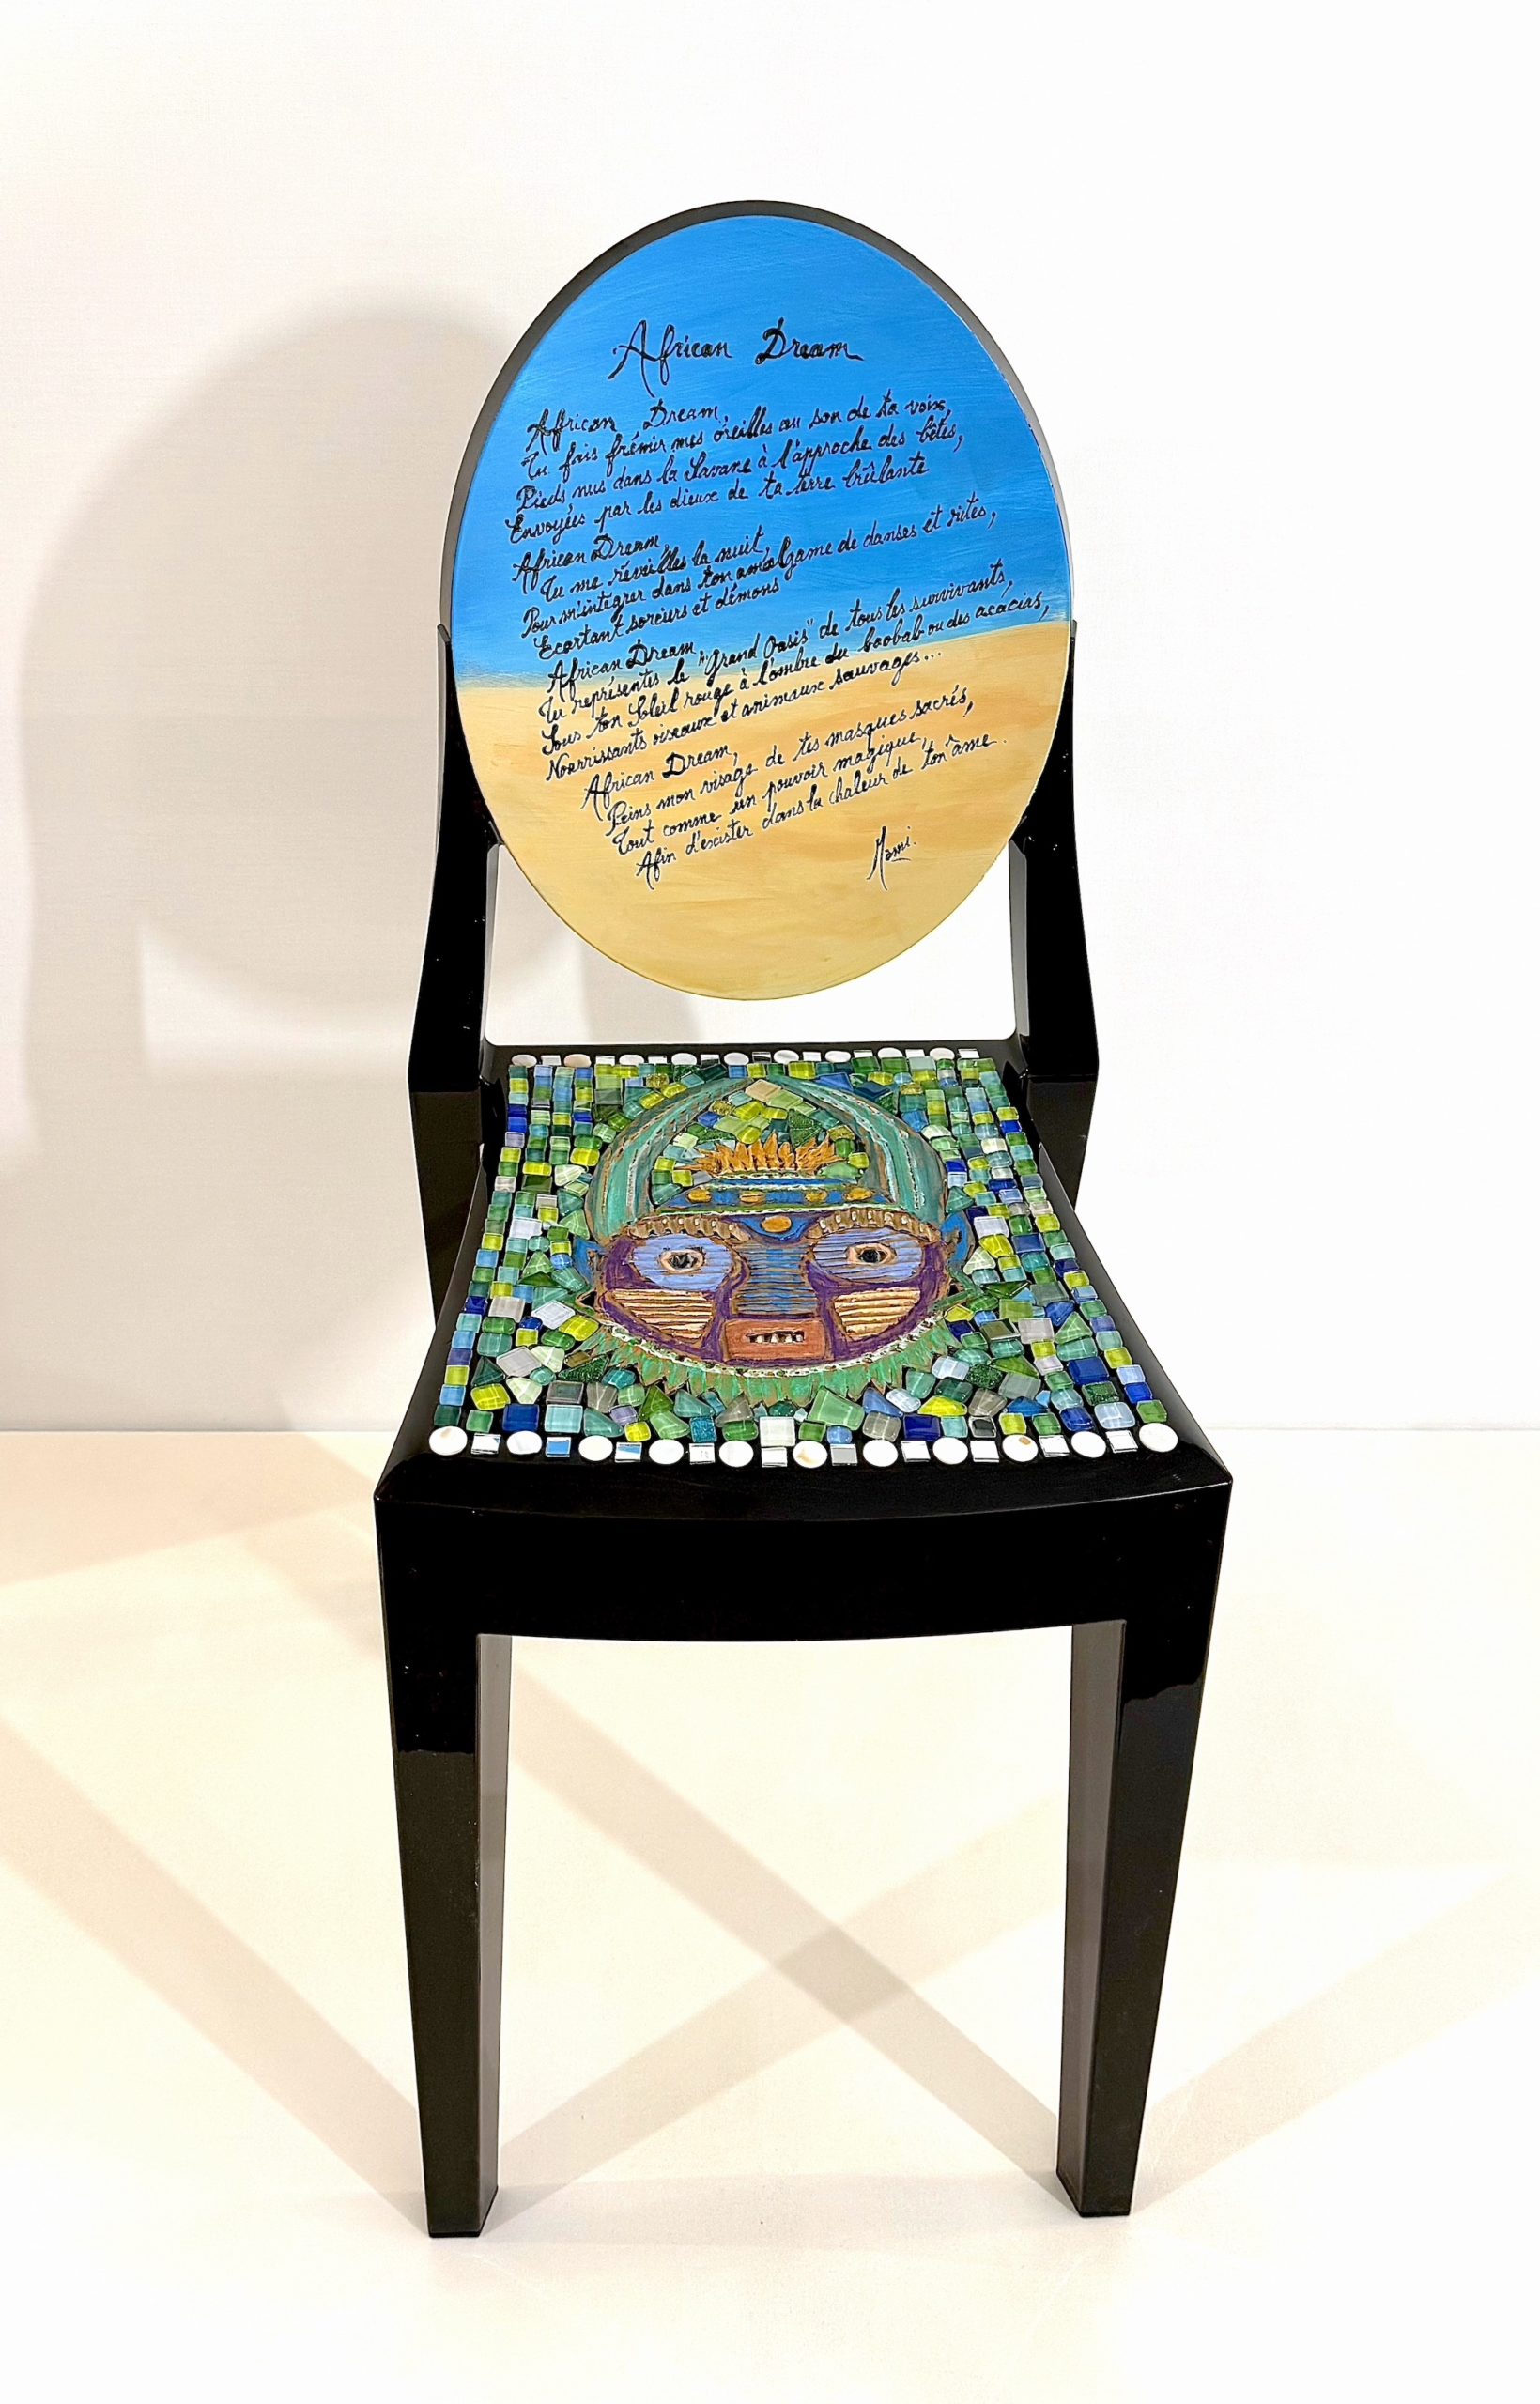 African Dream
African Dream,
Tu fais frémir mes oreilles au son de ta voix,
Pieds nus dans la Savane à l'approche des bêtes,
Envoyées par les dieux de ta terre brûlante
African Dream,
Tu me réveilles la nuit,
Pour m'intégrer dans ton amalgame de danses et rites,
Ecartant sorciers et démons
African Dream,
Tu représentes le "Grand Oasis" de tous les survivants,
Sous ton Soleil rouge à l'ombre du baobab ou des acacias,
Nourrissants oiseaux et animaux sauvages...
African Dream,
Peins mon visage de tes masques sacrés,
Tout comme un pouvoir magique,
Afin d'exister dans la chaleur de ton âme.